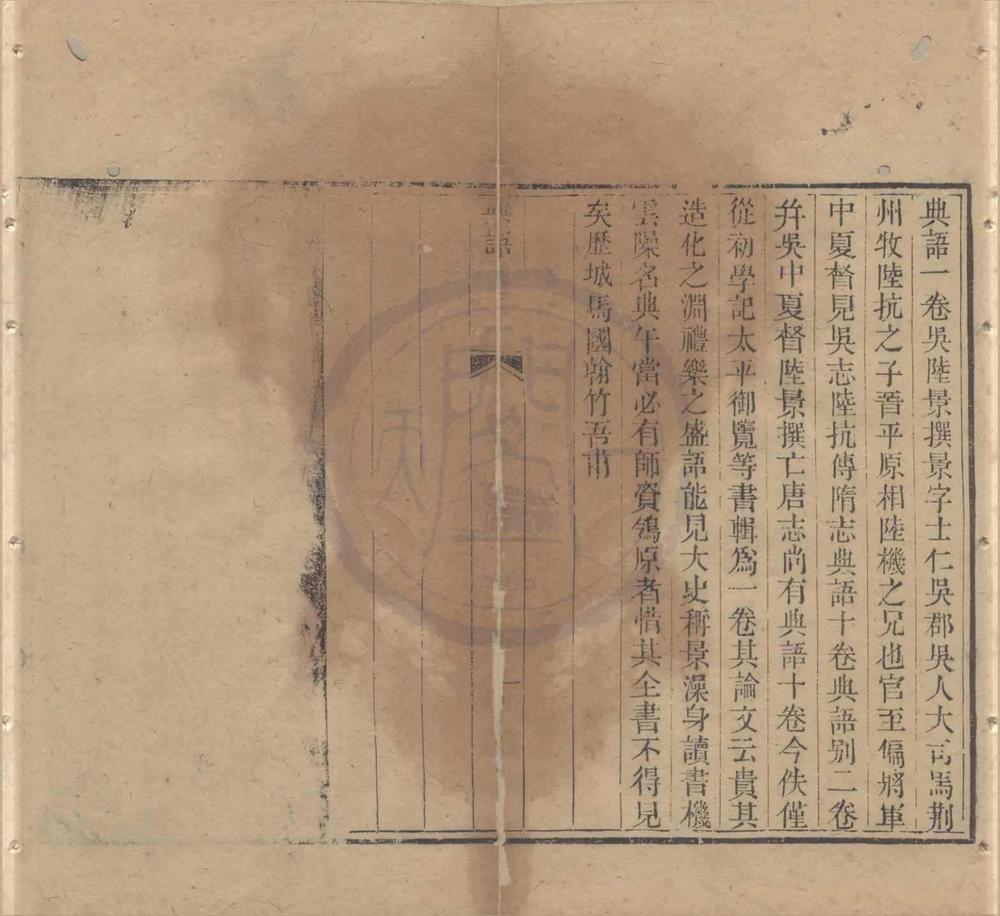 典語一卷吳陸景撰景字士仁吳郡吳人大司馬荆
州牧陸抗之子晉平原相陸機之兄也官至偏將軍
中夏督見吳志陸抗傳隋志典語十卷典語别二卷
幷吳中夏督陸景撰亡唐志尚有典語十卷今佚僅
從初學記太平御覽等書輯爲一卷其論文云貴其
造化之淵禮樂之盛語能見大史稱景澡身讀書機
雲躁名典午當必有師資鴒原者惜其全書不得見
矣歷城馬國翰竹吾甫
典語
一